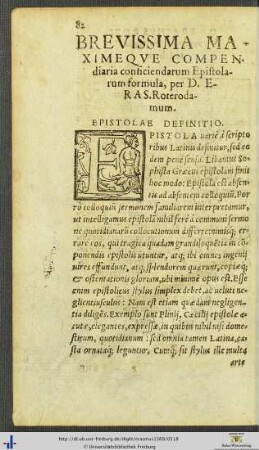 82
BREVISSIMA MA-
XIMEQVE COMPEN-
diaria conficiendarum Epistola-
rum formula, per D. E-
RAS. Roteroda-
mum.
EPISTOLAE DEFINITIO.
EPISTOLA variè à scripto
ribus Latinis definitur, sed eo
dem penè sensu. Libanius So-
phista Græcus epistolam finit
hoc modo: Epistola est absen-
tis ad absentem colloquiũ. Por
rò colloquiũ sermonem familiarem interpretamur,
ut intelligamus epistolã nihil ferè à communi sermo
ne quotidianoq́ collocutionum differre: eosq́; er-
rare eos, qui tragica quadam grandiloquẽtia in cõ-
ponendis epistolis utuntur, atq; ibi omnes ingenij
uires effundunt, atq; splendorem quærunt, copiæq́;
& ostentationis gloriam, ubi minimè opus est. Esse
autem epistolicus stylus simplex debet, ac ueluti ne-
gligentiusculus: Nam est etiam quædam negligen-
tia diligẽs. Exemplo sunt Plinij, Cæcilij epistolæ a-
cutæ, elegantes, expressæ, in quibus nihil nisi dome-
sticum, quotidianum: sed omnia tamen Latina, ca-
sta ornataq́; leguntur. Cumq́; sit stylus ille multa
arte
http://dl.ub.uni-freiburg.de/diglit/erasmus1569/0118
© Universitätsbibliothek Freiburg